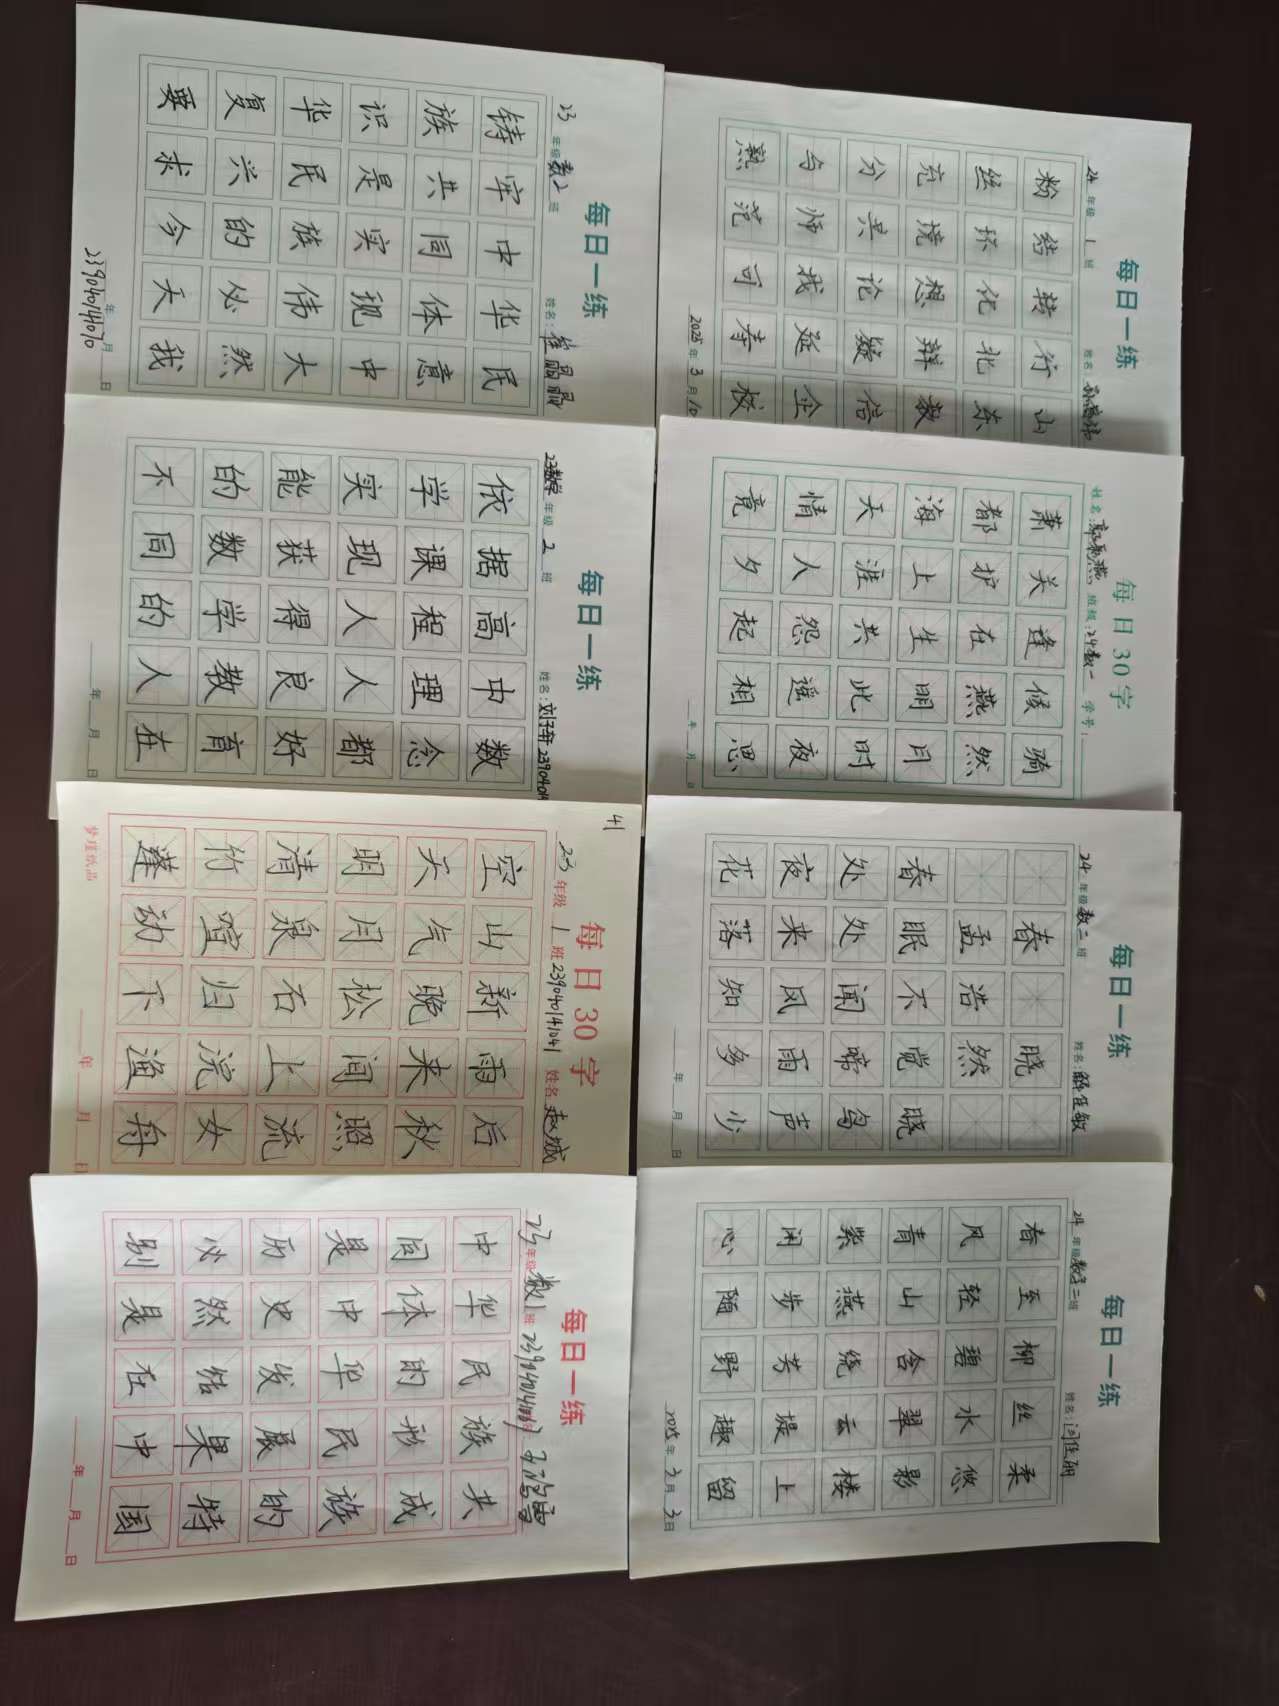 每日一练
24年级 1班 姓名:
粉结转行山
丝坏化北东
充境想辩教
分异论疑倍
勾师我延企
熟范可寿校
2025年3月10
每日30字
姓名:郭彩燕 班级:24数一 学号:
萧关逢候骑
都护在燕然
海上生明月
天涯共此时
情人怨遥夜
竟夕起相思
年 月 日
每日一练
24年级数二班 姓名:解佳敏
春晓
孟浩然
春眠不觉晓
处处闻啼鸟
夜来风雨声
花落知多少
年 月 日
每日一练
24年级数学二班 姓名:闫佳丽
春至柳丝柔
风轻碧水悠
青山含翠影
紫燕绕云楼
闲步芳堤上
心陌野趣留
2025年3月3日
每日一练
23年级数2班 姓名:崔晶晶
铸牢中华民
族共同体意
识是实现中
华民族伟大
复兴的必然
要求今天我
年 月 日
23904014070
每日一练
23数学年级 2班 姓名:刘子轩 23904014
依据高中数
学课程理念
实现人人都
能获得良好
的数学教育
不同的人在
年 月 日
41
每日30字
23年级 1班 23904014041 姓名:赵城
空山新雨后
天气晚来秋
明月松间照
清泉石上流
竹喧归浣女
蓬动下渔舟
梦瑾纸品 年 月 日
每日一练
23年级数1班
中华民族共
同体的形成
是中华民族
历史发展的
必然结果特
别是在中国
年 月 日